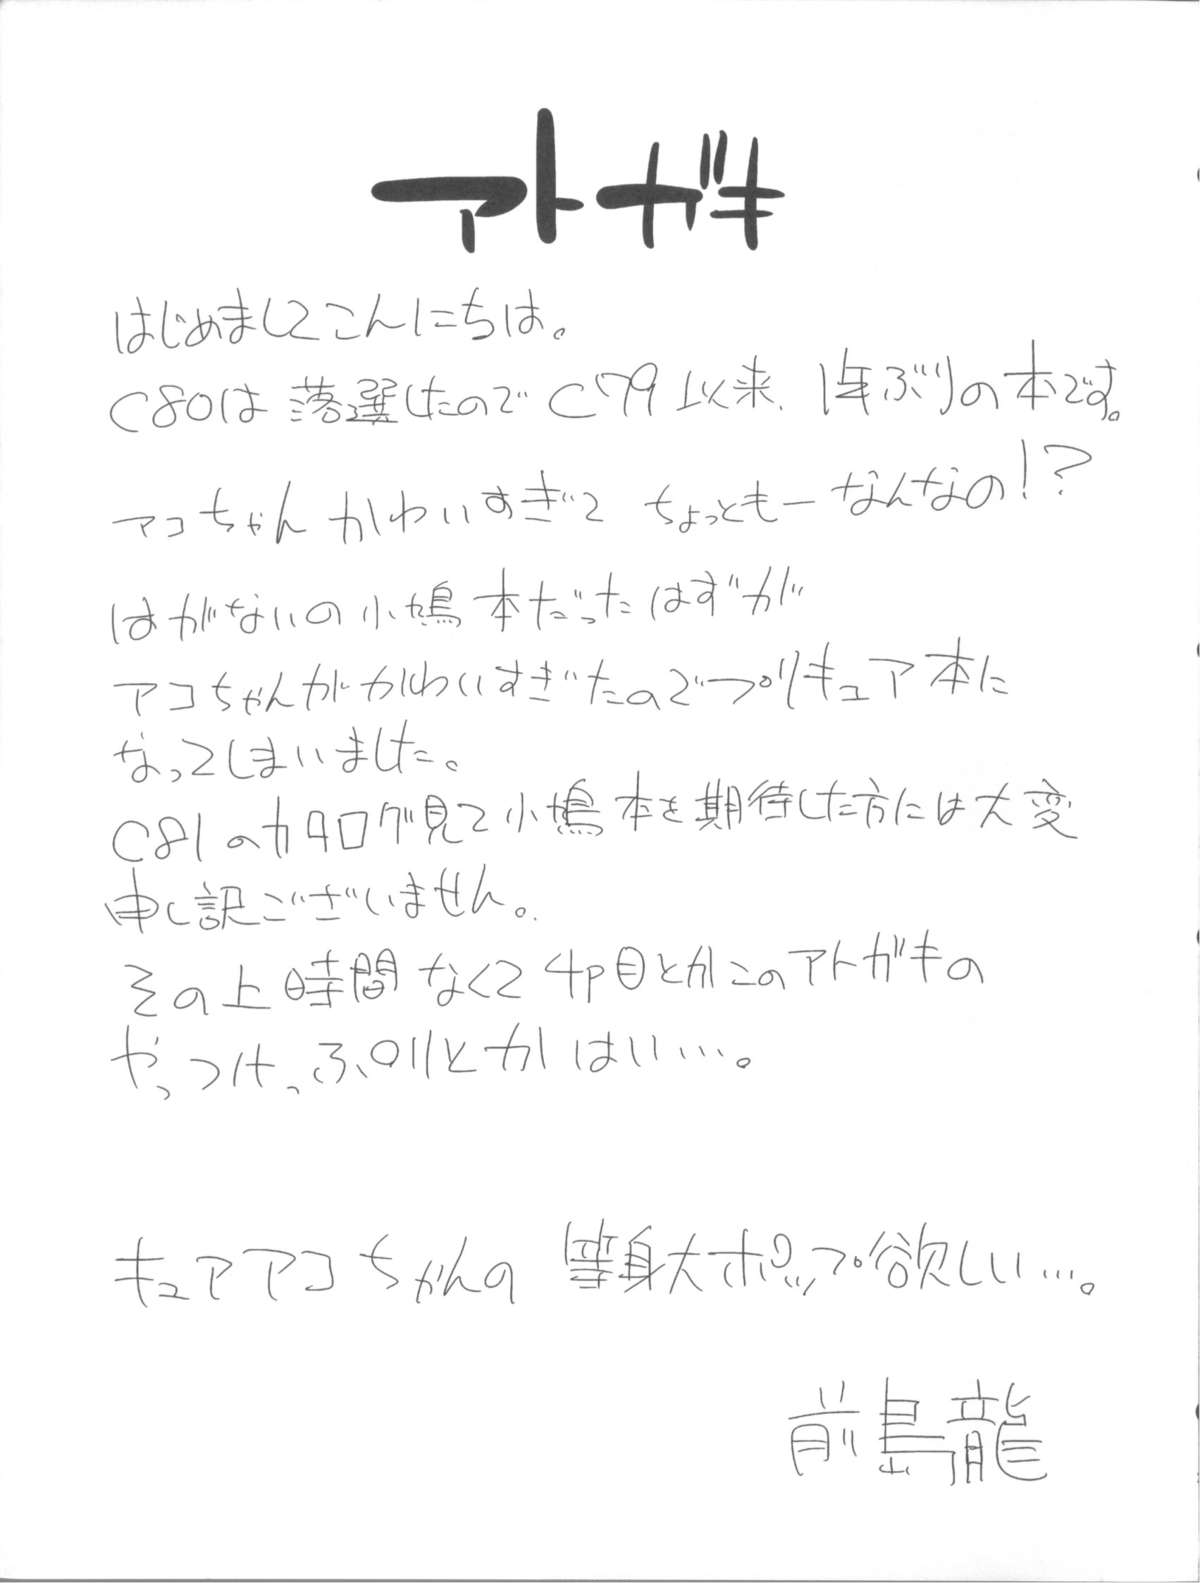 アトガキ
はじめましてこんにちは。
C80は落選したのでC79以来、1年ぶりの本です。
アコちゃんかわいすぎて ちょっともーなんなの!?
はがないの小鳩本だったはずが
アコちゃんがかわいすぎたのでプリキュア本に
なってしまいました。
C81のカタログ見て小鳩本を期待した方には大変
申し訳ございません。
その上時間なくて4p目とかこのアトガキの
やっつけっぷりとかはい…。
キュアアコちゃんの 等身大ポップ欲しい…。
前島龍